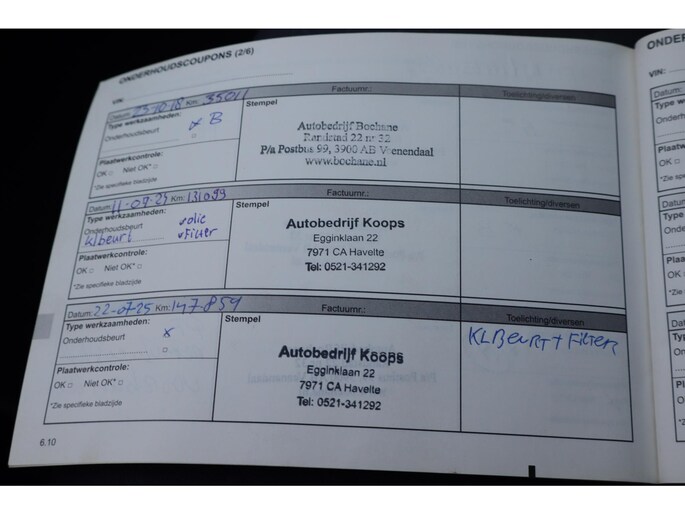 ONDERHOUDSCOUPONS (2/6)
VIN:
Datum: 23-10-18 Km: 35011
Factuurnr.:
Toelichting/diversen
Type werkzaamheden:
Onderhoudsbeurt
x B
Plaatwerkcontrole:
OK □ Niet OK* □
*Zie specifieke bladzijde
Stempel
Autobedrijf Bochane
Rondweg 22 nr 32
P/a Postbus 99, 3900 AB Veenendaal
www.bochane.nl
Datum: 11-09-23 Km: 131099
Factuurnr.:
Toelichting/diversen
Type werkzaamheden:
Onderhoudsbeurt
klbeurt
v olie
v Filter
Plaatwerkcontrole:
OK □ Niet OK* □
*Zie specifieke bladzijde
Stempel
Autobedrijf Koops
Egginklaan 22
7971 CA Havelte
Tel: 0521-341292
Datum: 22-07-25 Km: 147.859
Factuurnr.:
Toelichting/diversen
Type werkzaamheden:
Onderhoudsbeurt
x
Plaatwerkcontrole:
OK □ Niet OK* □
*Zie specifieke bladzijde
Stempel
Autobedrijf Koops
Egginklaan 22
7971 CA Havelte
Tel: 0521-341292
KLBeuRT + FilTER
6.10
VIN:
Datum:
Type we
Onderho
Plaatw
OK □
*Zie spe
Datum:
Type w
Onderh
Plaatw
OK □
*Zie sp
Datum
Type
Onder
Plaat
OK
*Zie s